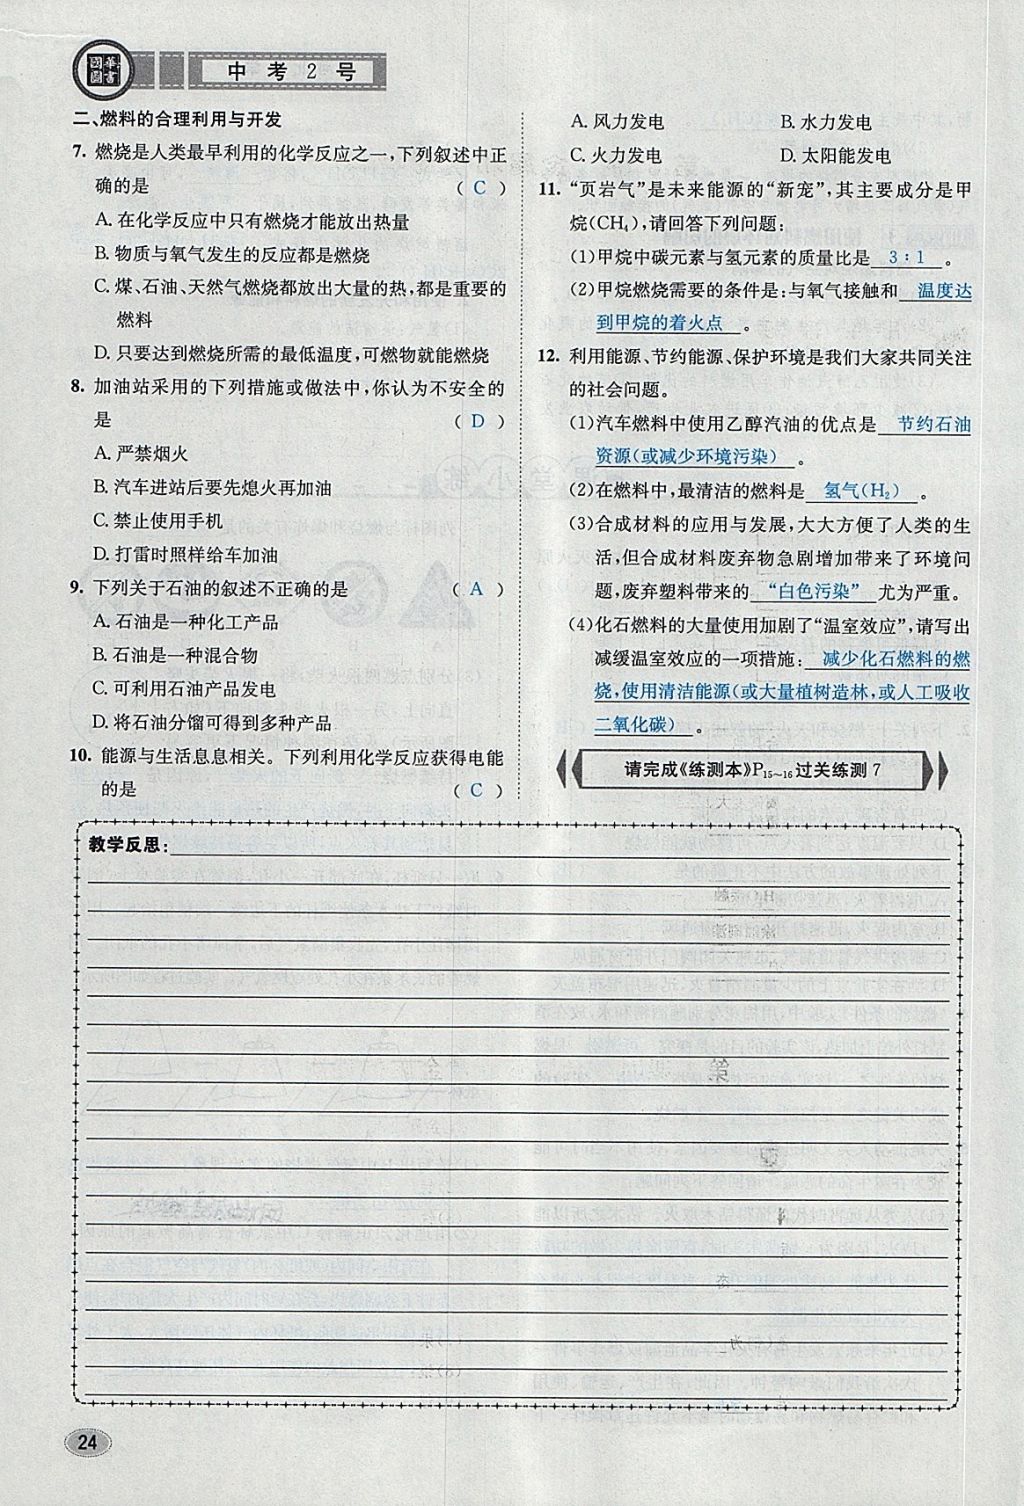 國華
圖書
中考2号
二、燃料的合理利用与开发
7. 燃烧是人类最早利用的化学反应之一,下列叙述中正
确的是 ( C )
A. 在化学反应中只有燃烧才能放出热量
B. 物质与氧气发生的反应都是燃烧
C. 煤、石油、天然气燃烧都放出大量的热,都是重要的
燃料
D. 只要达到燃烧所需的最低温度,可燃物就能燃烧
8. 加油站采用的下列措施或做法中,你认为不安全的
是 ( D )
A. 严禁烟火
B. 汽车进站后要先熄火再加油
C. 禁止使用手机
D. 打雷时照样给车加油
9. 下列关于石油的叙述不正确的是 ( A )
A. 石油是一种化工产品
B. 石油是一种混合物
C. 可利用石油产品发电
D. 将石油分馏可得到多种产品
10. 能源与生活息息相关。下列利用化学反应获得电能
的是 ( C )
A. 风力发电 B. 水力发电
C. 火力发电 D. 太阳能发电
11. “页岩气”是未来能源的“新宠”,其主要成分是甲
烷(CH₄),请回答下列问题:
(1)甲烷中碳元素与氢元素的质量比是 3∶1 。
(2)甲烷燃烧需要的条件是:与氧气接触和 温度达
到甲烷的着火点 。
12. 利用能源、节约能源、保护环境是我们大家共同关注
的社会问题。
(1)汽车燃料中使用乙醇汽油的优点是 节约石油
资源(或减少环境污染) 。
(2)在燃料中,最清洁的燃料是 氢气(H₂) 。
(3)合成材料的应用与发展,大大方便了人类的生
活,但合成材料废弃物急剧增加带来了环境问
题,废弃塑料带来的 “白色污染” 尤为严重。
(4)化石燃料的大量使用加剧了“温室效应”,请写出
减缓温室效应的一项措施: 减少化石燃料的燃
烧,使用清洁能源(或大量植树造林,或人工吸收
二氧化碳) 。
请完成《练测本》P₁₅~₁₆过关练测7
教学反思:
24